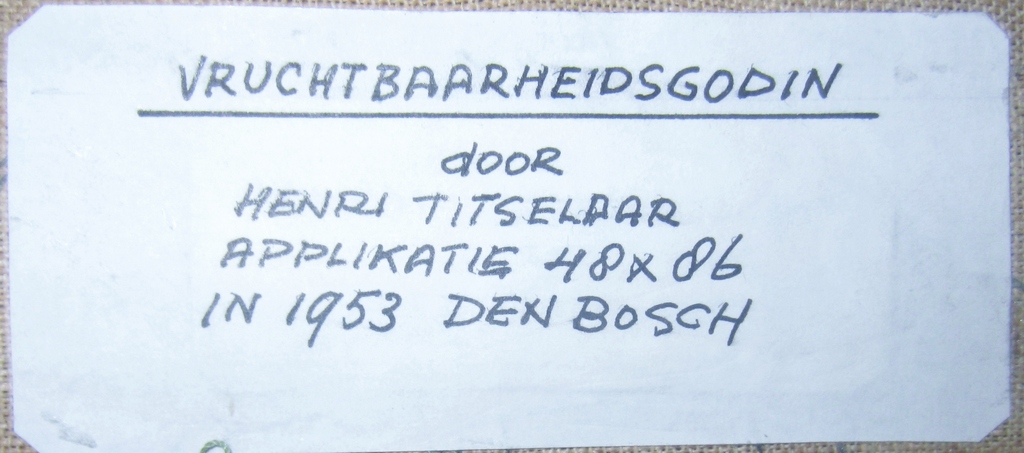 VRUCHTBAARHEIDSGODIN
door
HENRI TITSELAAR
APPLIKATIE 48x86
IN 1953 DEN BOSCH